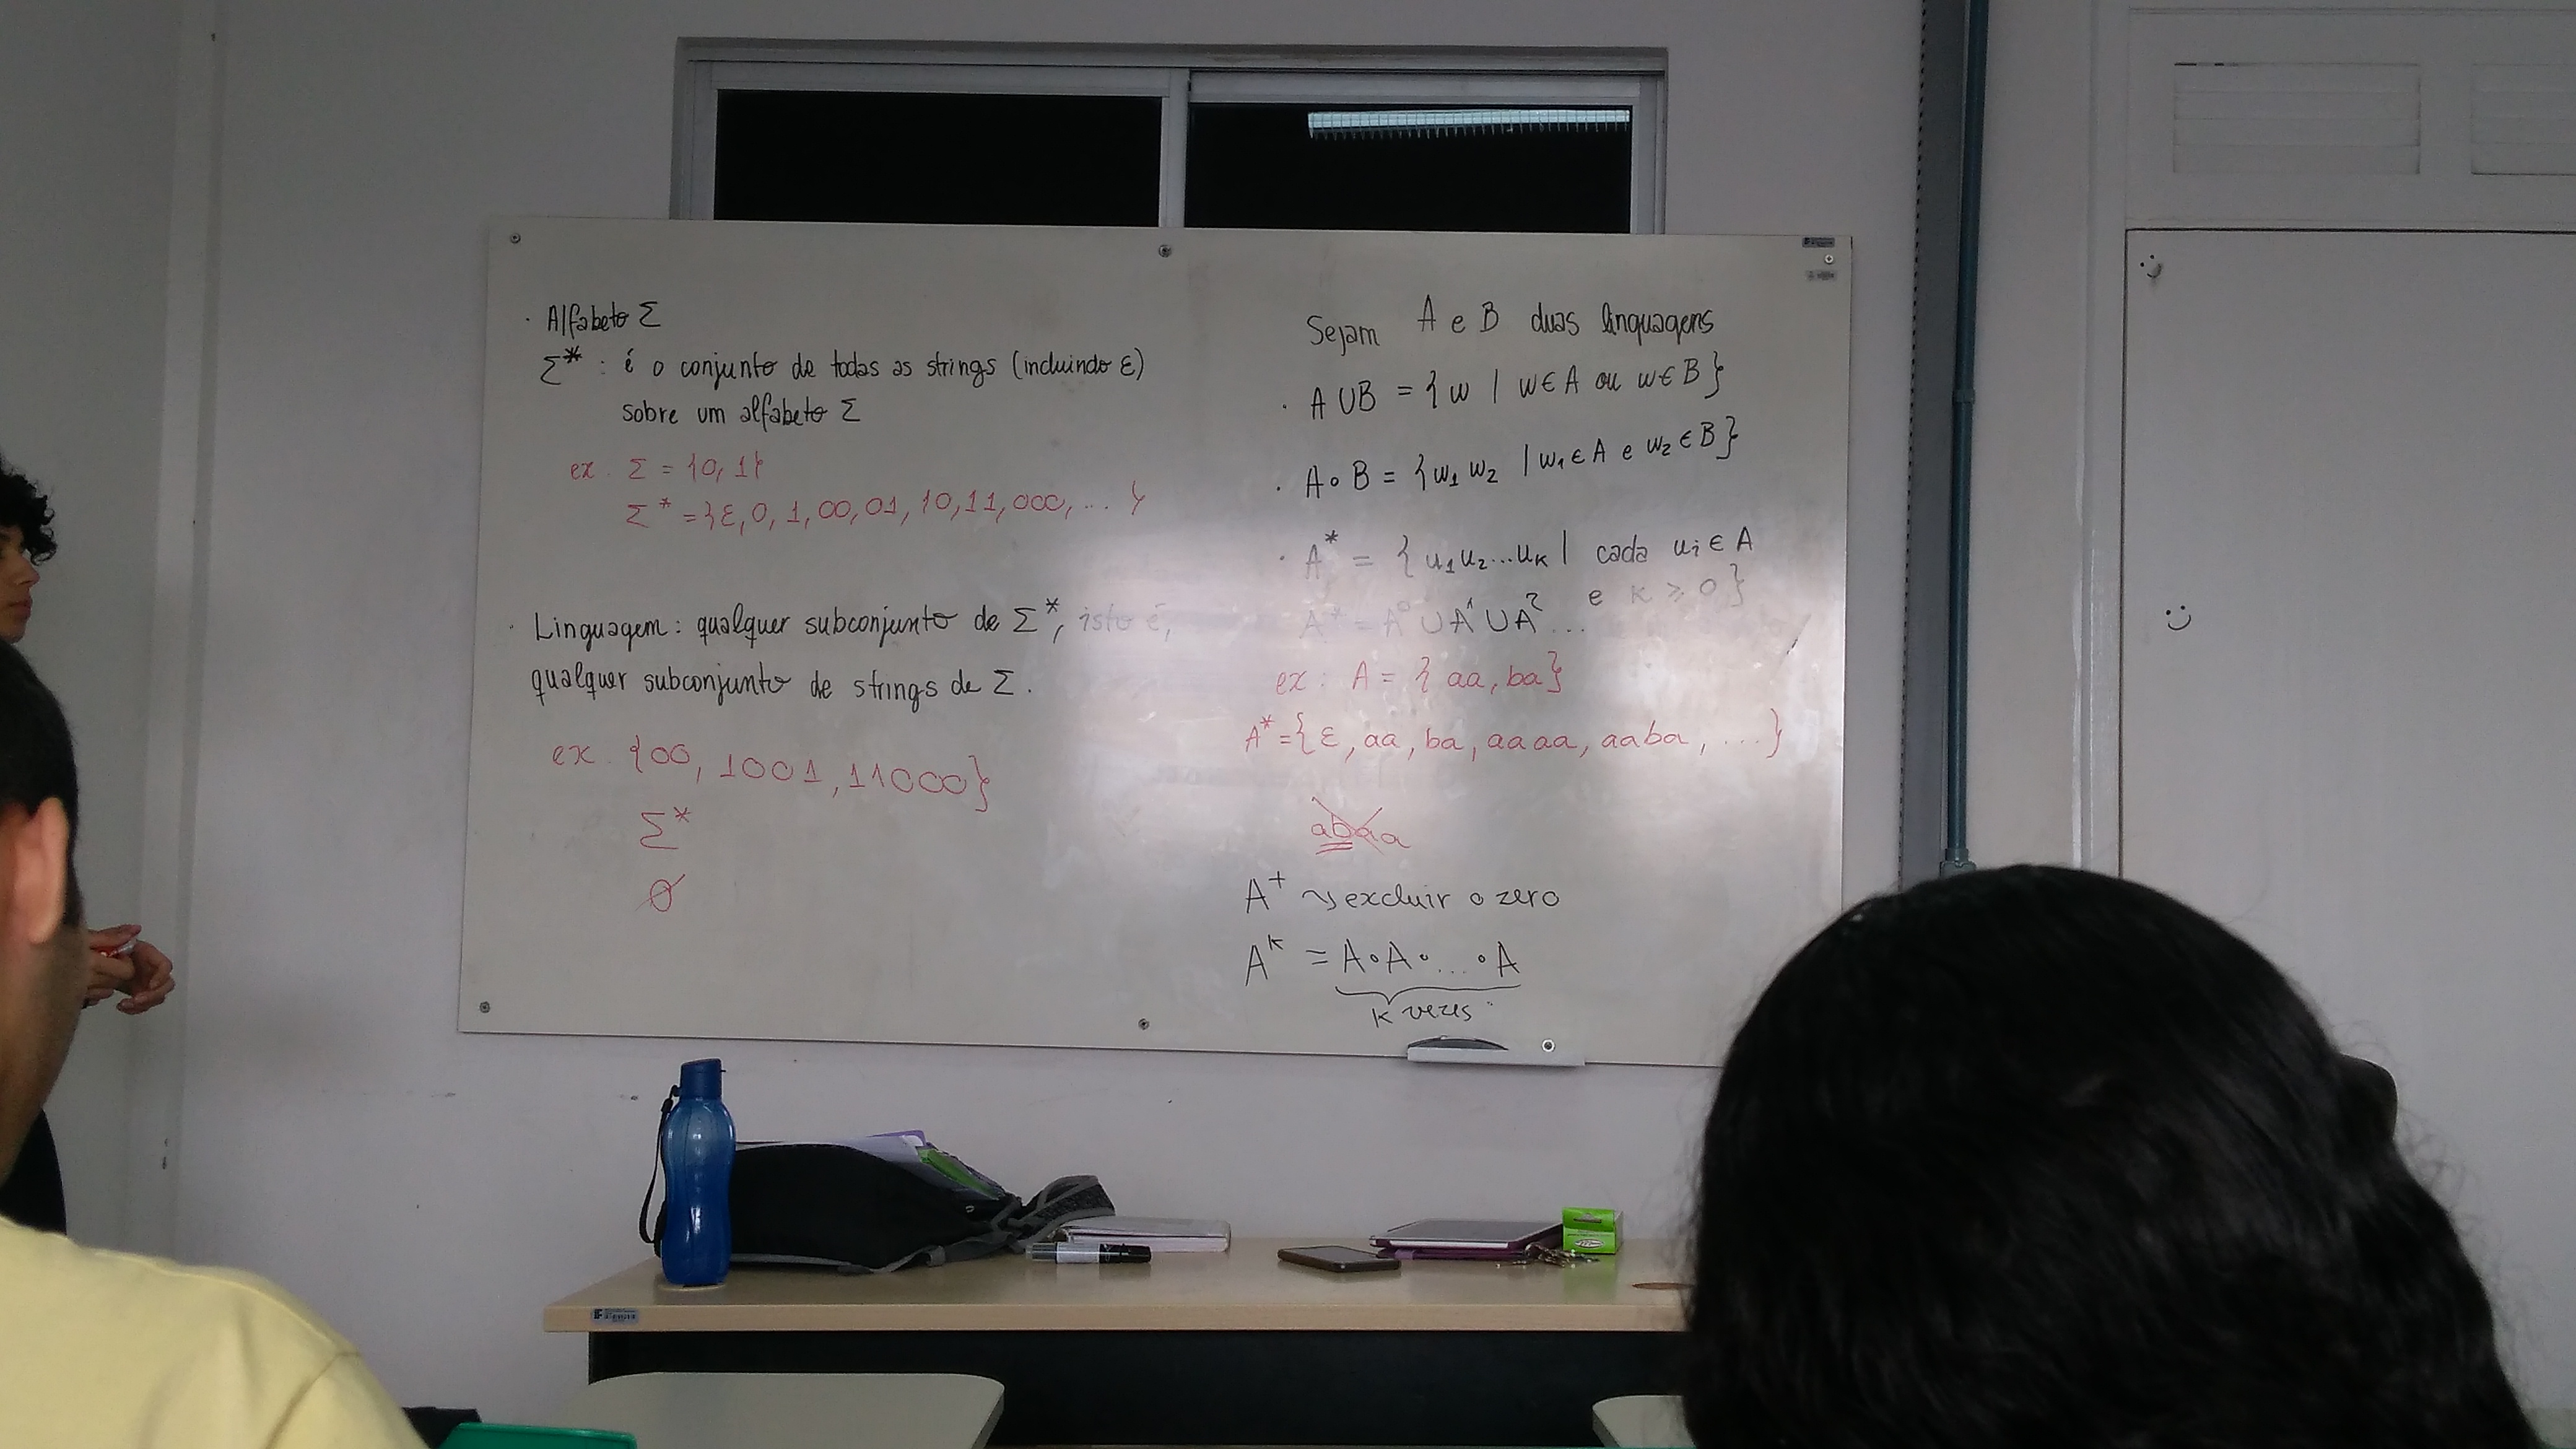 · Alfabeto Σ
Σ* : é o conjunto de todas as strings (incluindo ε)
sobre um alfabeto Σ
ex. Σ = {0, 1}
Σ* = {ε, 0, 1, 00, 01, 10, 11, 000, ... }
· Linguagem: qualquer subconjunto de Σ*, isto é,
qualquer subconjunto de strings de Σ.
ex. {00, 1001, 11000}
Σ*
∅
Sejam A e B duas linguagens
· A ∪ B = { w | w ∈ A ou w ∈ B }
· A ∘ B = { w₁ w₂ | w₁ ∈ A e w₂ ∈ B }
· A* = { u₁u₂...uₖ | cada uᵢ ∈ A
e k ≥ 0 }
A* = A⁰ ∪ A¹ ∪ A² ...
ex: A = { aa, ba }
A* = { ε, aa, ba, aaaa, aaba, ... }
abaa
A⁺ ↝ excluir o zero
Aᵏ = A ∘ A ∘ ... ∘ A
k vezes